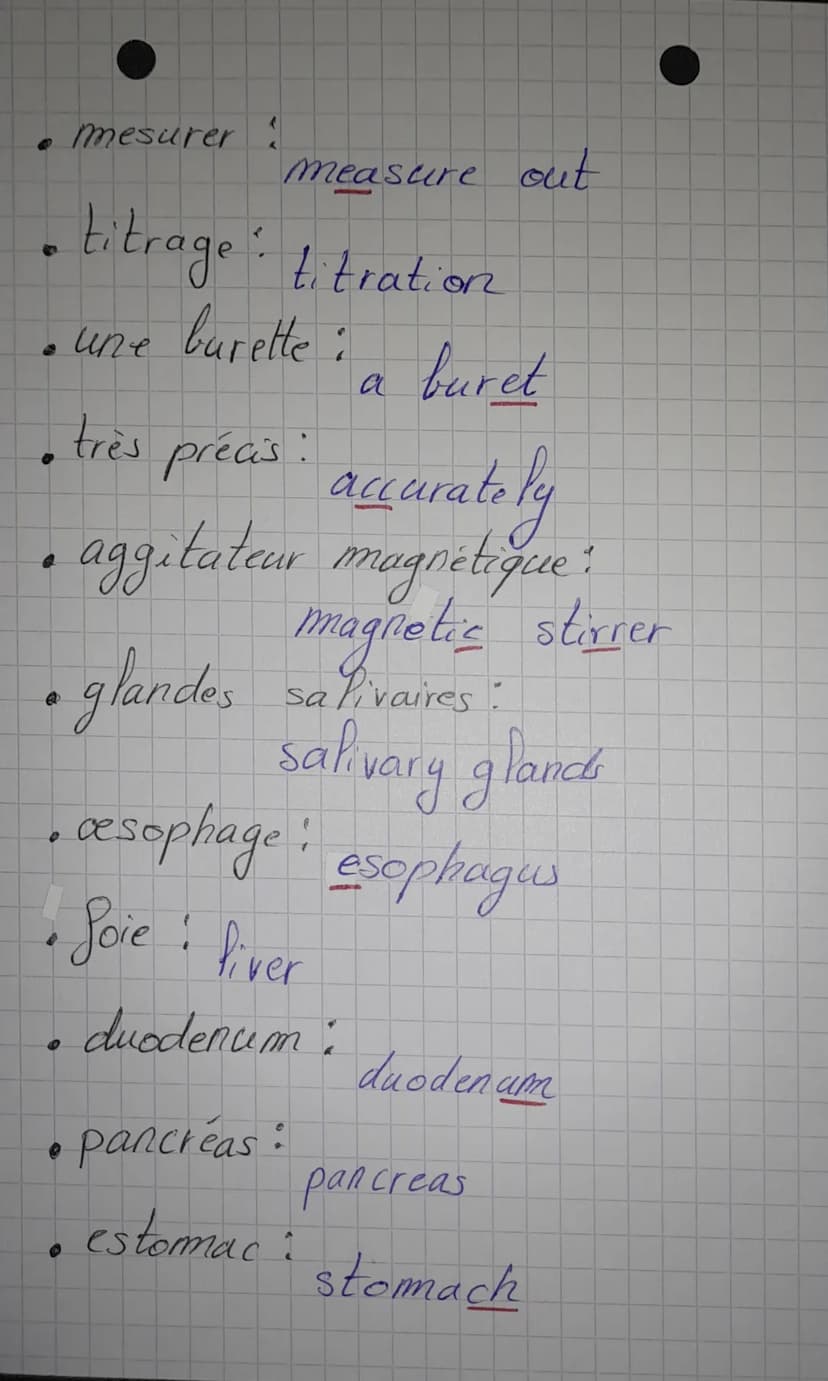 • mesurer :
measure out
• titrage :
titration
• une burette :
a buret
• très précis :
accurately
• aggitateur magnétique :
magnetic stirrer
• glandes salivaires :
salivary glands
• œsophage :
esophagus
• foie :
liver
• duodenum :
duodenum
• pancréas :
pancreas
• estomac :
stomach